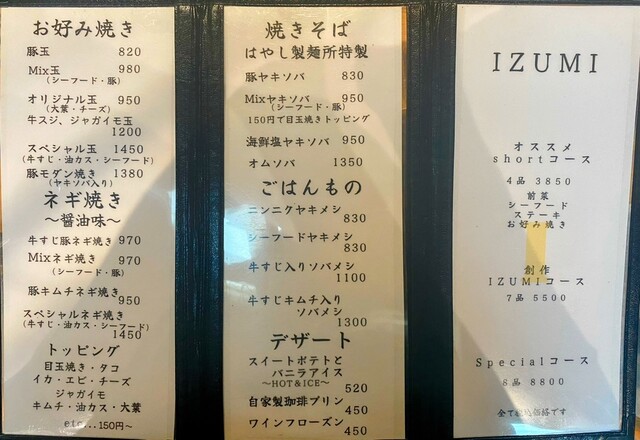 お好み焼き
豚玉 820
Mix玉 980
(シーフード・豚)
オリジナル玉 950
(大葉・チーズ)
牛スジ、ジャガイモ玉
1200
スペシャル玉 1450
(牛すじ・油カス・シーフード)
豚モダン焼き 1380
(ヤキソバ入り)
ネギ焼き
〜醤油味〜
牛すじ豚ネギ焼き 970
Mixネギ焼き 970
(シーフード・豚)
豚キムチネギ焼き
950
スペシャルネギ焼き
(牛すじ・油カス・シーフード)
1450
トッピング
目玉焼き・タコ
イカ・エビ・チーズ
ジャガイモ
キムチ・油カス・大葉
etc...150円〜
焼きそば
はやし製麺所特製
豚ヤキソバ 830
Mixヤキソバ 950
(シーフード・豚)
150円で目玉焼きトッピング
海鮮塩ヤキソバ 950
オムソバ 1350
ごはんもの
ニンニクヤキメシ
830
シーフードヤキメシ
830
牛すじ入りソバメシ
1100
牛すじキムチ入り
ソバメシ
1300
デザート
スイートポテトと
バニラアイス
〜HOT&ICE〜
520
自家製珈琲プリン
450
ワインフローズン
450
IZUMI
オススメ
shortコース
4品 3850
前菜
シーフード
ステーキ
お好み焼き
創作
IZUMIコース
7品 5500
Specialコース
8品 8800
全て税込価格です